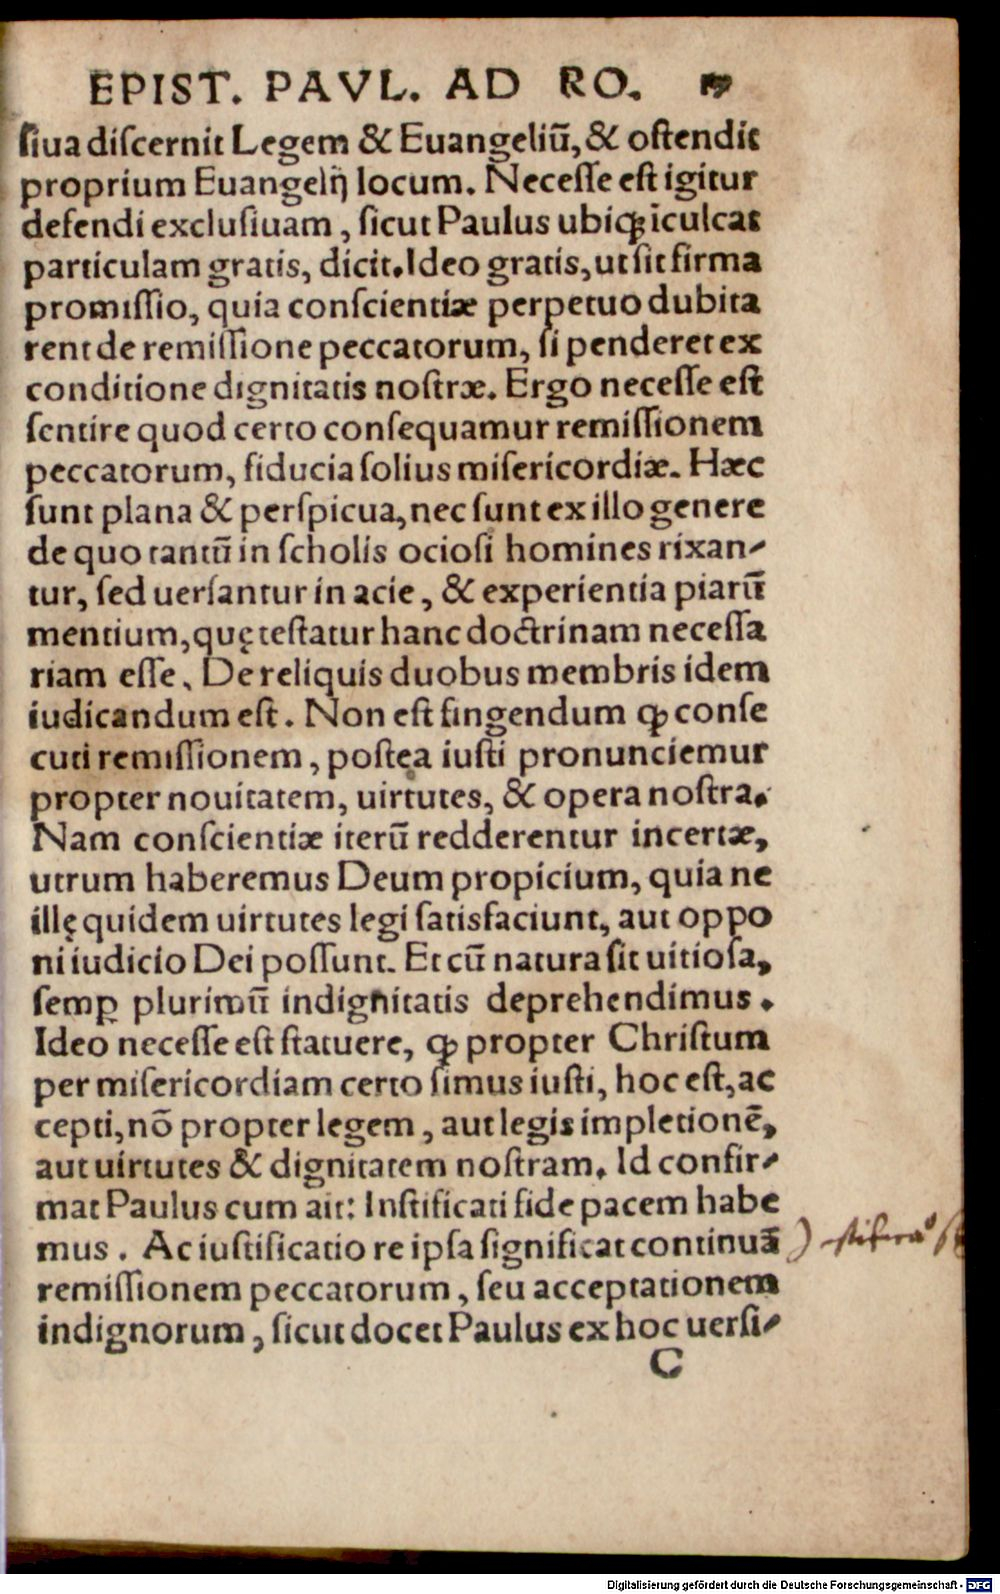 EPIST. PAVL. AD RO.
ſiua diſcernit Legem & Euangeliũ, & oſtendit
proprium Euangelij locum. Neceſſe eſt igitur
defendi excluſiuam, ſicut Paulus ubiqꝫ ĩculcat
particulam gratis, dicit. Ideo gratis, ut ſit firma
promiſſio, quia conſcientiæ perpetuo dubita
rent de remiſſione peccatorum, ſi penderet ex
conditione dignitatis noſtræ. Ergo neceſſe eſt
ſentire quod certo conſequamur remiſſionem
peccatorum, fiducia ſolius miſericordiæ. Hæc
ſunt plana & perſpicua, nec ſunt ex illo genere
de quo tantũ in ſcholis ocioſi homines rixan-
tur, ſed uerſantur in acie, & experientia piarũ
mentium, quę teſtatur hanc doctrinam neceſſa
riam eſſe. De reliquis duobus membris idem
iudicandum eſt. Non eſt fingendum ꝙ conſe
cuti remiſſionem, poſtea iuſti pronunciemur
propter nouitatem, uirtutes, & opera noſtra.
Nam conſcientiæ iterũ redderentur incertæ,
utrum haberemus Deum propicium, quia ne
illę quidem uirtutes legi ſatisfaciunt, aut oppo
ni iudicio Dei poſſunt. Et cũ natura ſit uitioſa,
ſemꝑ plurimũ indignitatis deprehendimus.
Ideo neceſſe eſt ſtatuere, ꝙ propter Chriſtum
per miſericordiam certo ſimus iuſti, hoc eſt, ac
cepti, nõ propter legem, aut legis impletionẽ,
aut uirtutes & dignitatem noſtram. Id confir-
mat Paulus cum ait: Iuſtificati fide pacem habe
mus. Ac iuſtificatio re ipſa ſignificat continuã
remiſſionem peccatorum, ſeu acceptationem
indignorum, ſicut docet Paulus ex hoc uerſi-
C
Digitalisierung gefördert durch die Deutsche Forschungsgemeinschaft - DFG